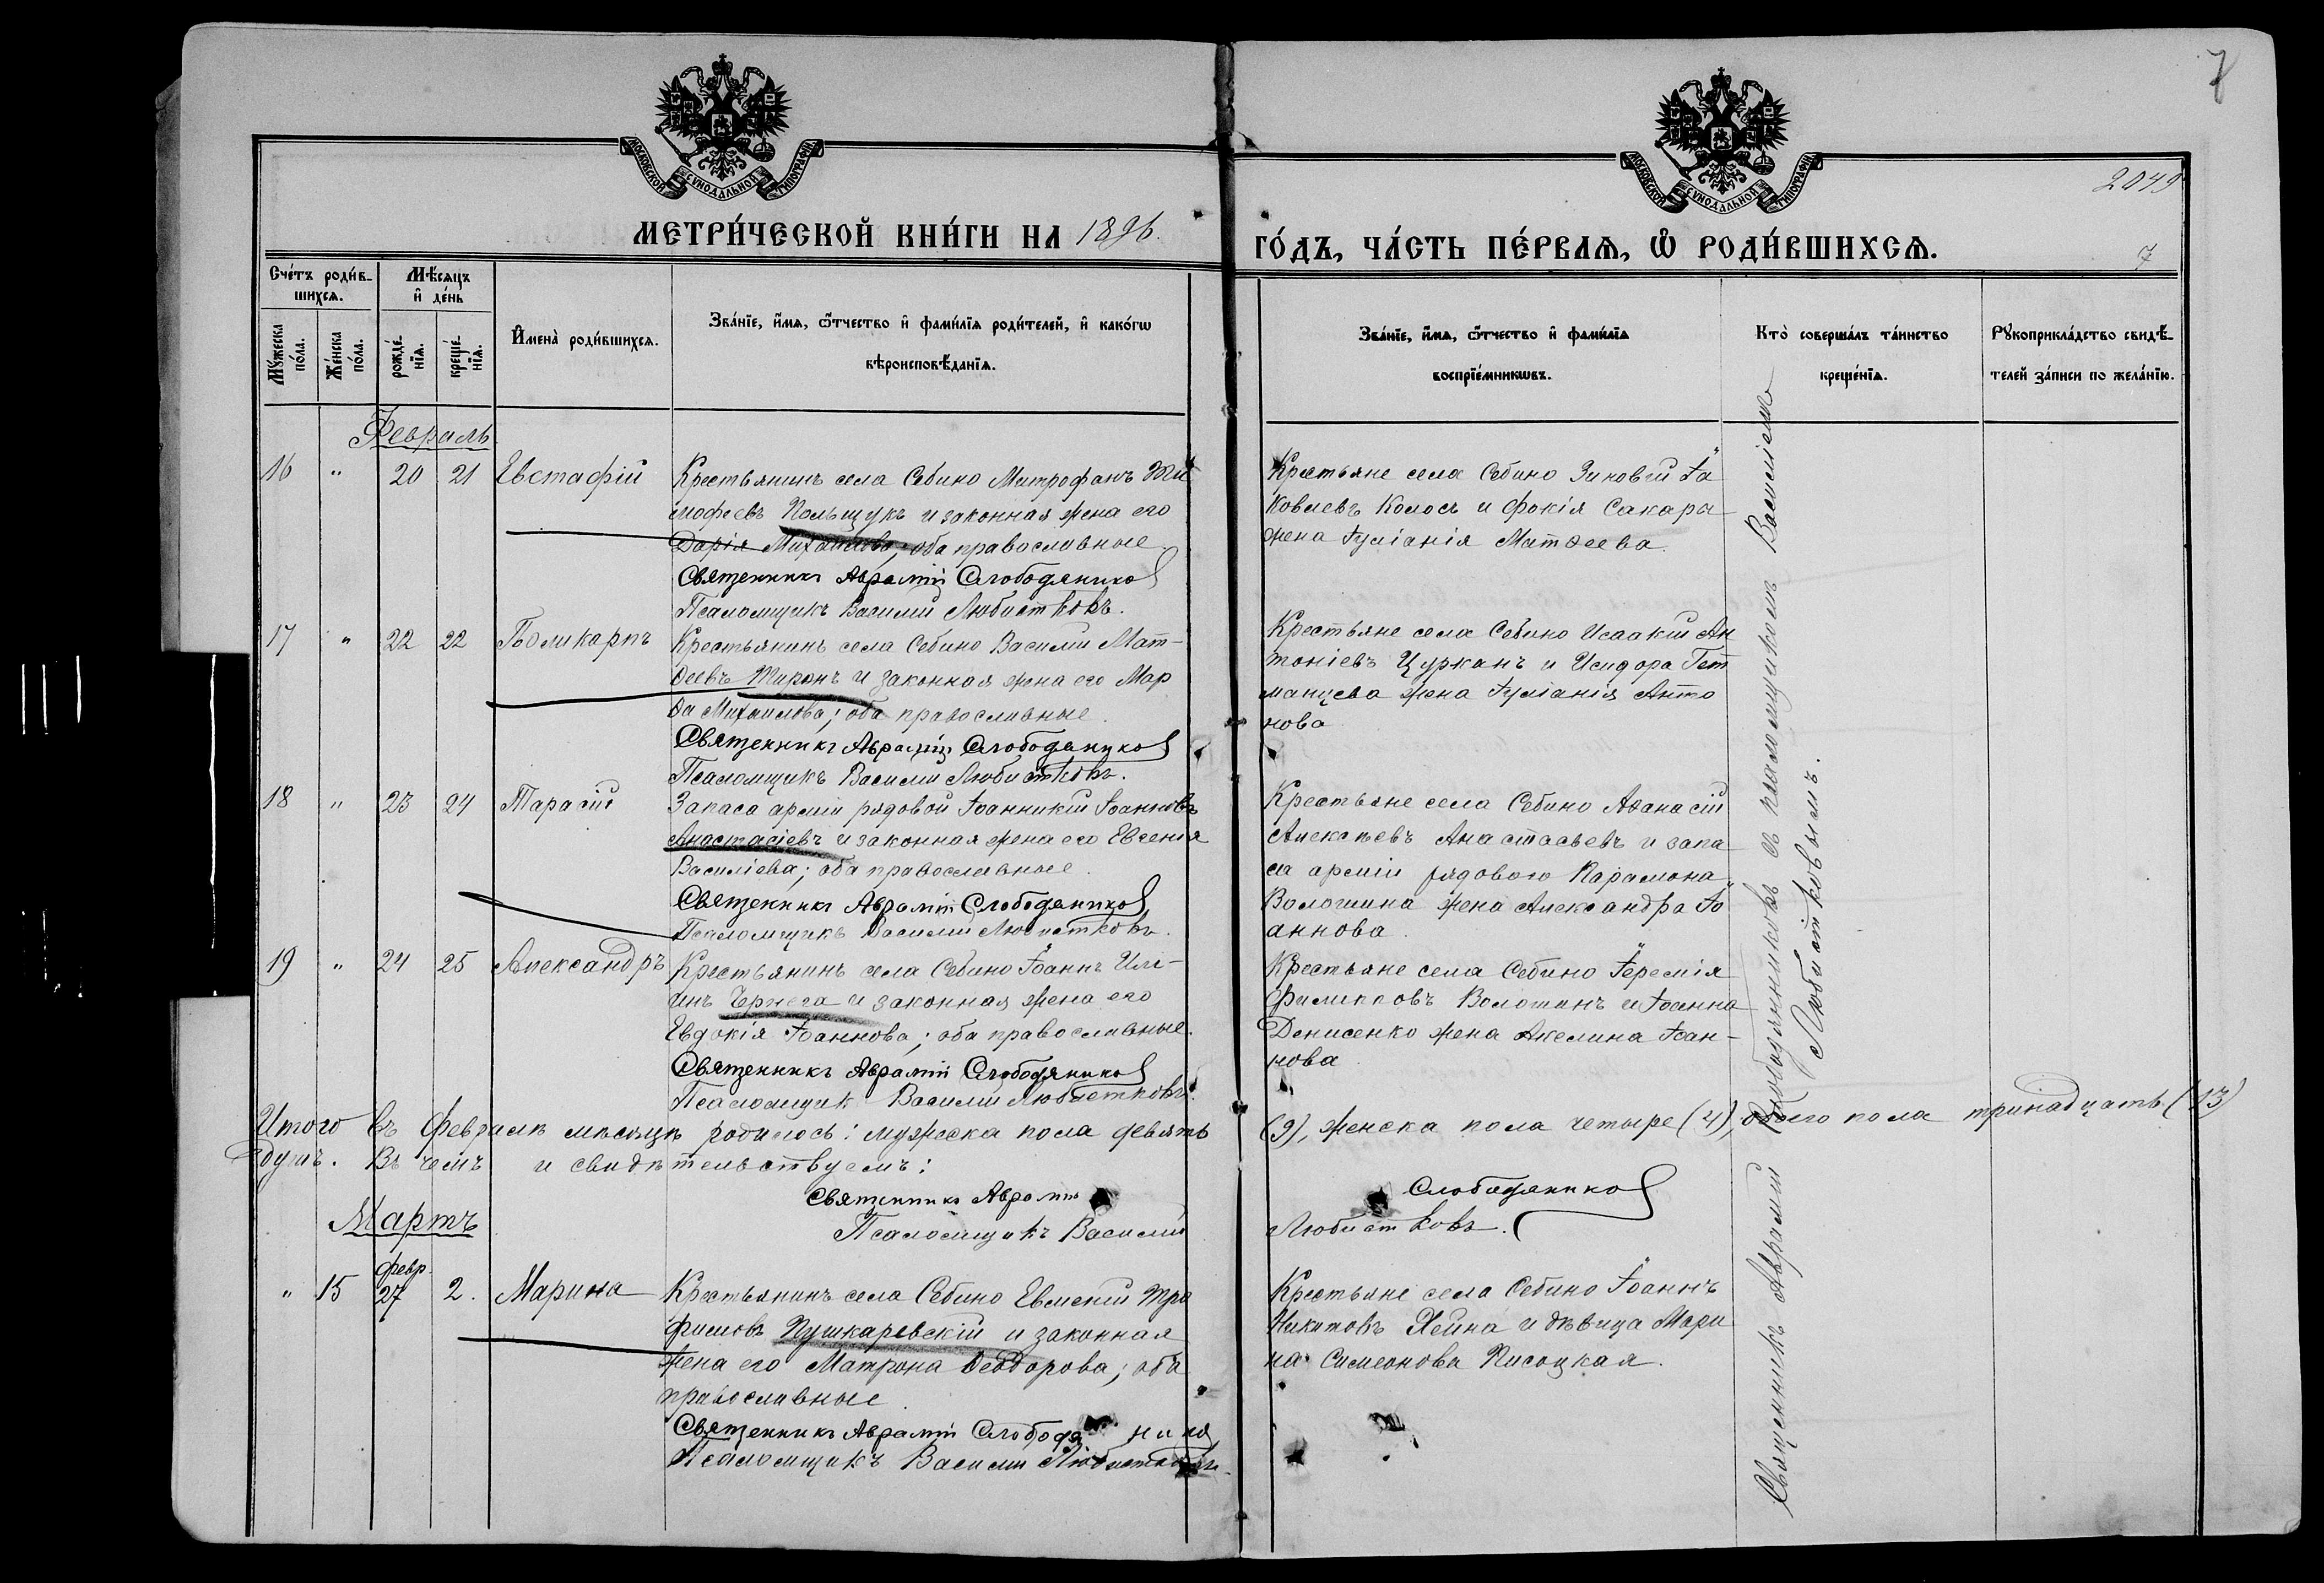 7
МОСКОВСКОЙ СУНОДАЛЬНОЙ ТИПОГРАФІИ
МОСКОВСКОЙ СУНОДАЛЬНОЙ ТИПОГРАФІИ
2049
МЕТРИ́ЧЕСКОЙ КНИ́ГИ НА 1896.
ГО́ДЪ, ЧА́СТЬ ПЕ́РВАѦ, Ѡ҆ РОДИ́ВШИХСѦ.
7
Сче́тъ роди́в-
шихсѧ.
Мѣ́сѧцъ
и҆ де́нь
Мꙋ́жеска по́ла.
Же́нска по́ла.
рожде́нїѧ.
креще́нїѧ.
И҆мена̀ роди́вшихсѧ.
Зва́нїе, и҆́мѧ, ѻ҆́тчество и҆ фами́лїѧ роди́телей, и҆ како́гѡ
вѣроисповѣ́данїѧ.
Зва́нїе, и҆́мѧ, ѻ҆́тчество и҆ фами́лїѧ
воспрїе́мникѡвъ.
Кто̀ соверша́лъ та́инство
креще́нїѧ.
Рꙋкоприкла́дство свидѣ́-
телей за́писи по жела́нїю.
Февраль
16 " 20 21 Евстафій Крестьянинъ села Себино Митрофанъ Ти
мофеевъ Польщукъ и законная жена его
Дарія Михаилова; оба православные.
Священникъ Аврамій Слободянико
Псаломщикъ Василій Любистковъ.
Крестьяне села Себино Зиновій Іа
ковлевъ Колосъ и Фокія Сакара
жена Іуліанія Матѳеева.
17 " 22 22 Поликарпъ Крестьянинъ села Себино Василій Мат-
ѳеевъ Тиронъ и законная жена его Мар
ѳа Михаилова; оба православные.
Священникъ Аврамій Слободянико
Псаломщикъ Василій Любистковъ.
Крестьяне села Себино Исаакій Ан
тоніевъ Цурканъ и Исидора Гет
манцева жена Іуліанія Анто
нова
18 " 23 24 Тарасій Запаса арміи рядовой Іоанникій Іоанновъ
Анастасіевъ и законная жена его Евгенія
Василіева; оба православные.
Священникъ Аврамій Слободянико
Псаломщикъ Василій Любистковъ.
Крестьяне села Себино Аѳанасій
Алексѣевъ Анастасьевъ и запа
са арміи рядового Парамона
Волошина жена Александра Іо
аннова.
19 " 24 25 Александръ Крестьянинъ села Себино Іоаннъ Илі-
инъ Чернега и законная жена его
Евдокія Іоаннова; оба православные.
Священникъ Аврамій Слободянико
Псаломщик Василій Любистковъ.
Крестьяне села Себино Іеремія
Филипповъ Волошинъ и Іоанна
Денисенко жена Акелина Іоан-
нова
Итого въ Февралѣ мѣсяцѣ родилось: мужеска пола девять (9), женска пола четыре (4), обоего пола тринадцать (13)
душъ. Въ чемъ и свидѣтельствуемъ:
Священникъ Аврамій Слободянико
Псаломщикъ Василій Любистковъ.
Мартъ
" 15 февр. 27 2. Марина Крестьянинъ села Себино Евменій Тро
фимовъ Пушкаревскій и законная
жена его Матрона Ѳеодорова; оба
православные.
Священникъ Аврамій Слободянико
Псаломщикъ Василій Любистковъ.
Крестьяне села Себино Іоаннъ
Никитовъ Хейна и дѣвица Мари
на Симеонова Писоцкая.
Священникъ Аврамій Слободяниковъ съ псаломщикомъ Василіемъ
Любистковымъ.